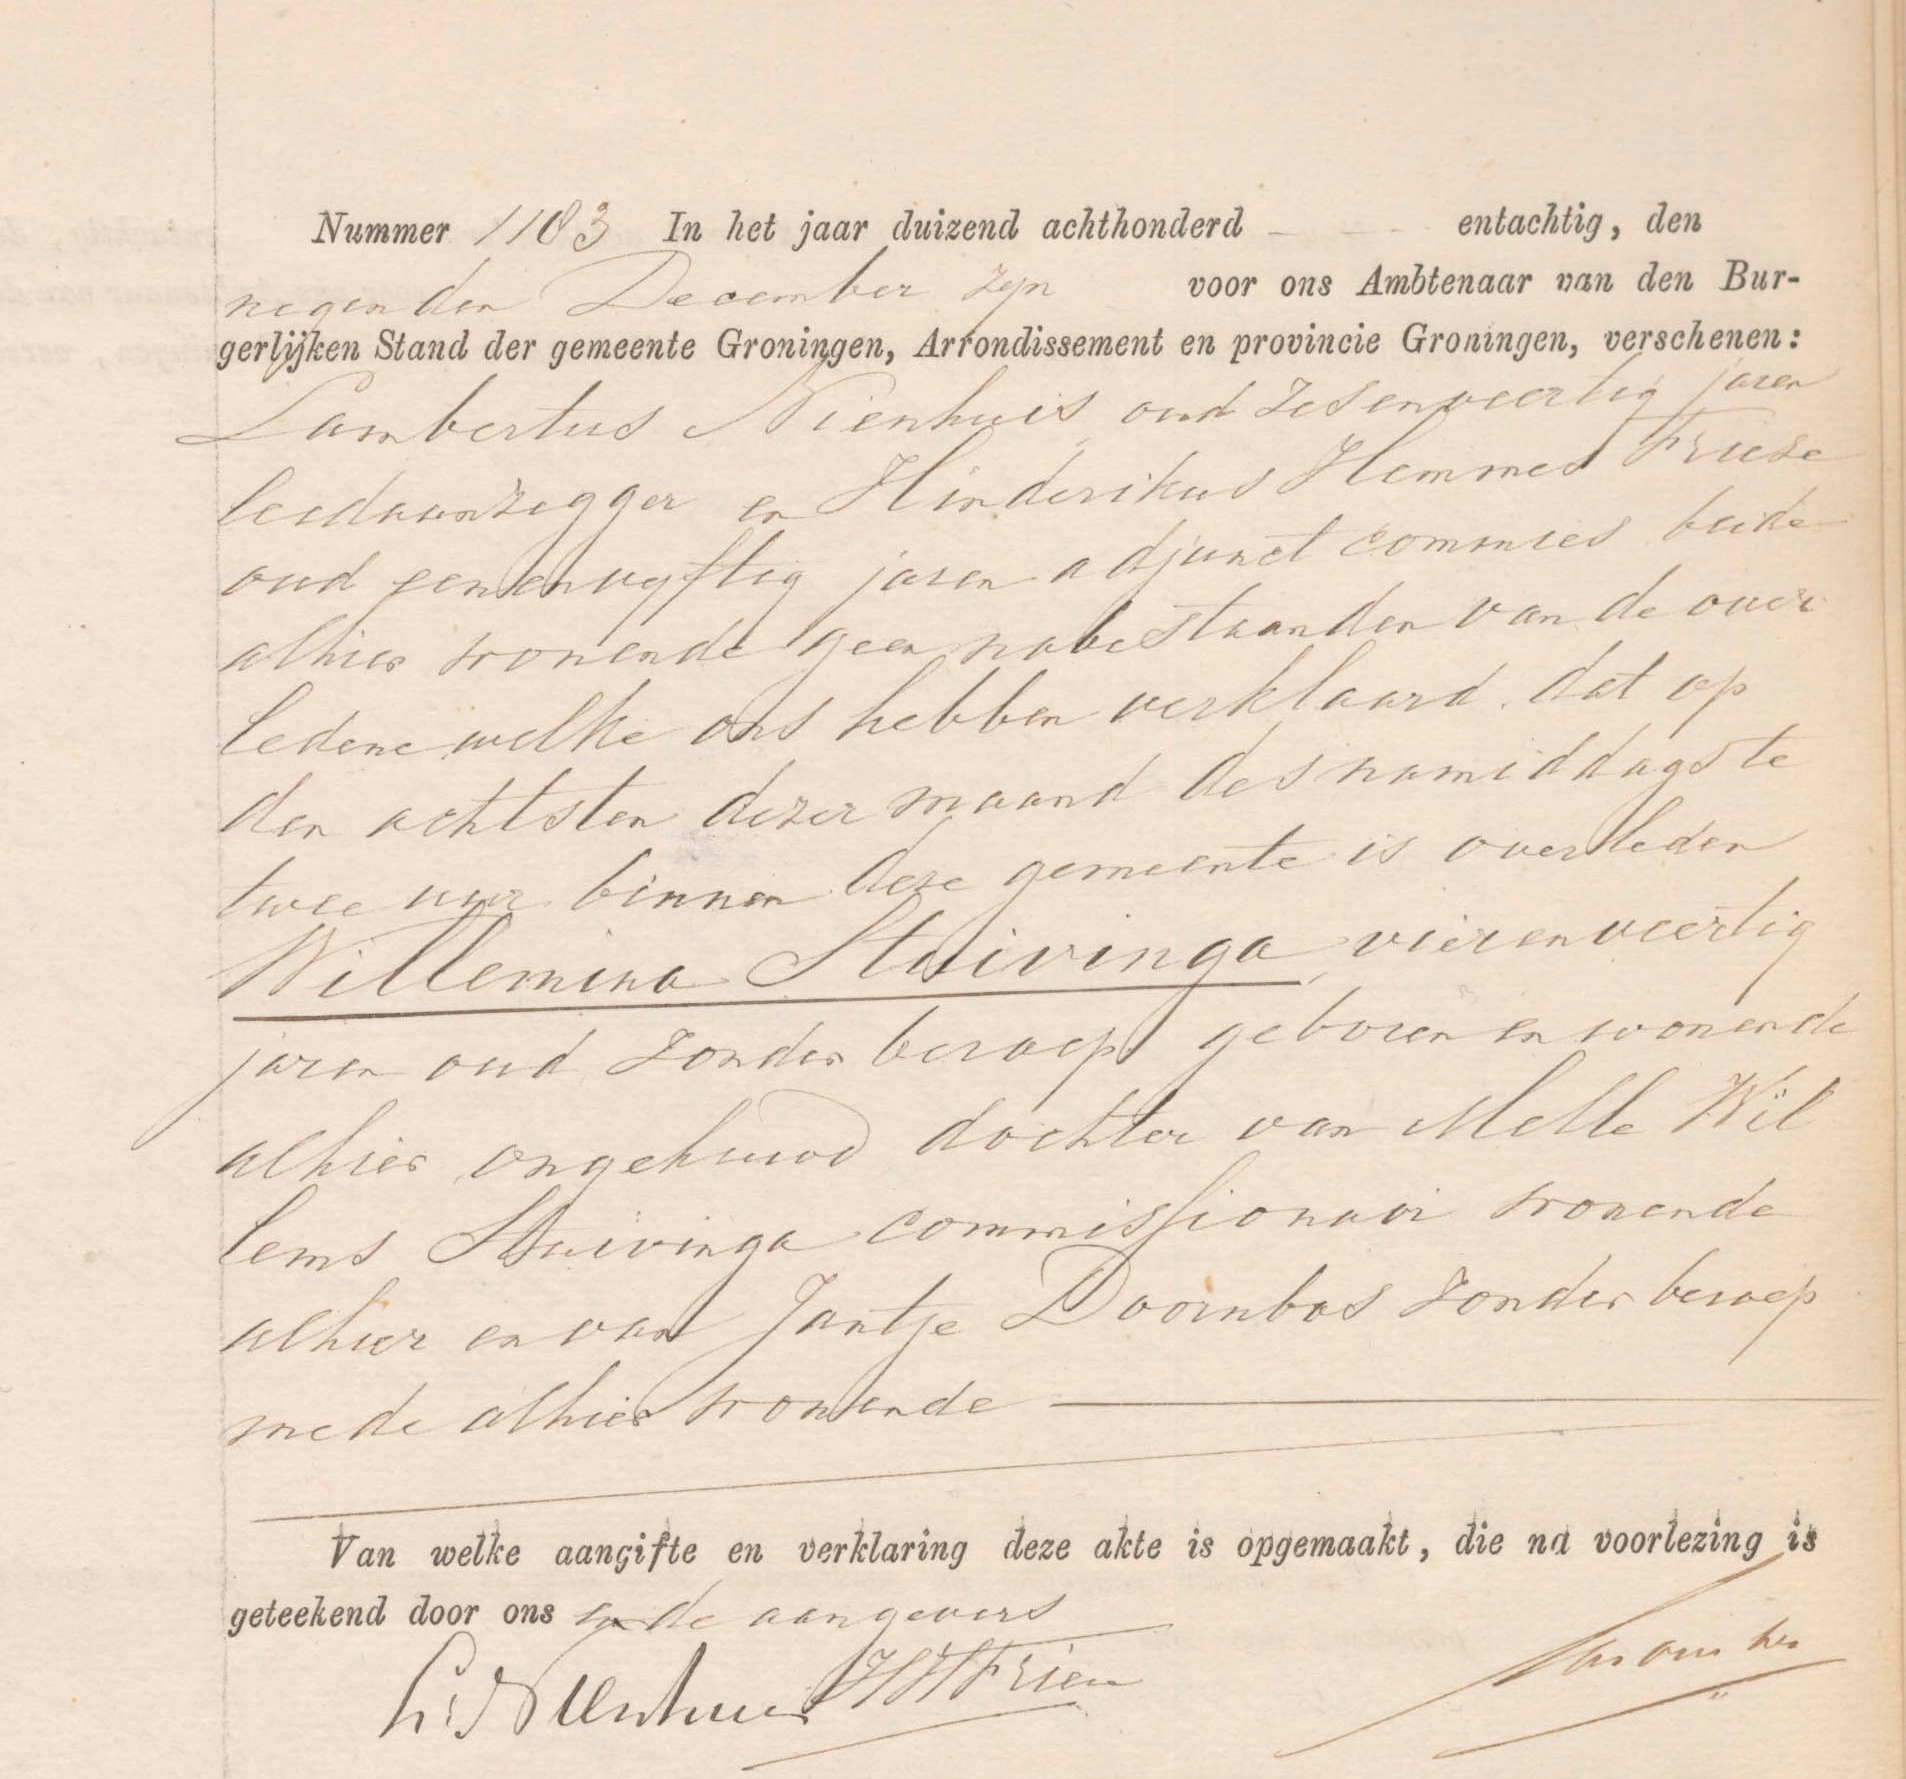 Nummer 1183 In het jaar duizend achthonderd — — entachtig, den
negenden December zijn voor ons Ambtenaar van den Bur-
gerlijken Stand der gemeente Groningen, Arrondissement en provincie Groningen, verschenen:
Lambertus Nienhuis, oud zesenveertig jaren
leedaanzegger en Hinderikus Hemmes Frieze
oud eenenvyftig jaren adjunct commies beide
alhier wonende geen nabestaanden van de over
ledene welke ons hebben verklaard dat op
den achtsten dezer maand des namiddags te
twee uur binnen deze gemeente is overleden
Willemina Stuivinga, vierenveertig
jaren oud zonder beroep geboren en wonende
alhier ongehuwd dochter van Melle Wil
lems Stuivinga commissionair wonende
alhier en van Jantje Doornbos zonder beroep
mede alhier wonende
Van welke aangifte en verklaring deze akte is opgemaakt, die na voorlezing is
geteekend door ons en de aangevers
L. Nienhuis HHFrieze